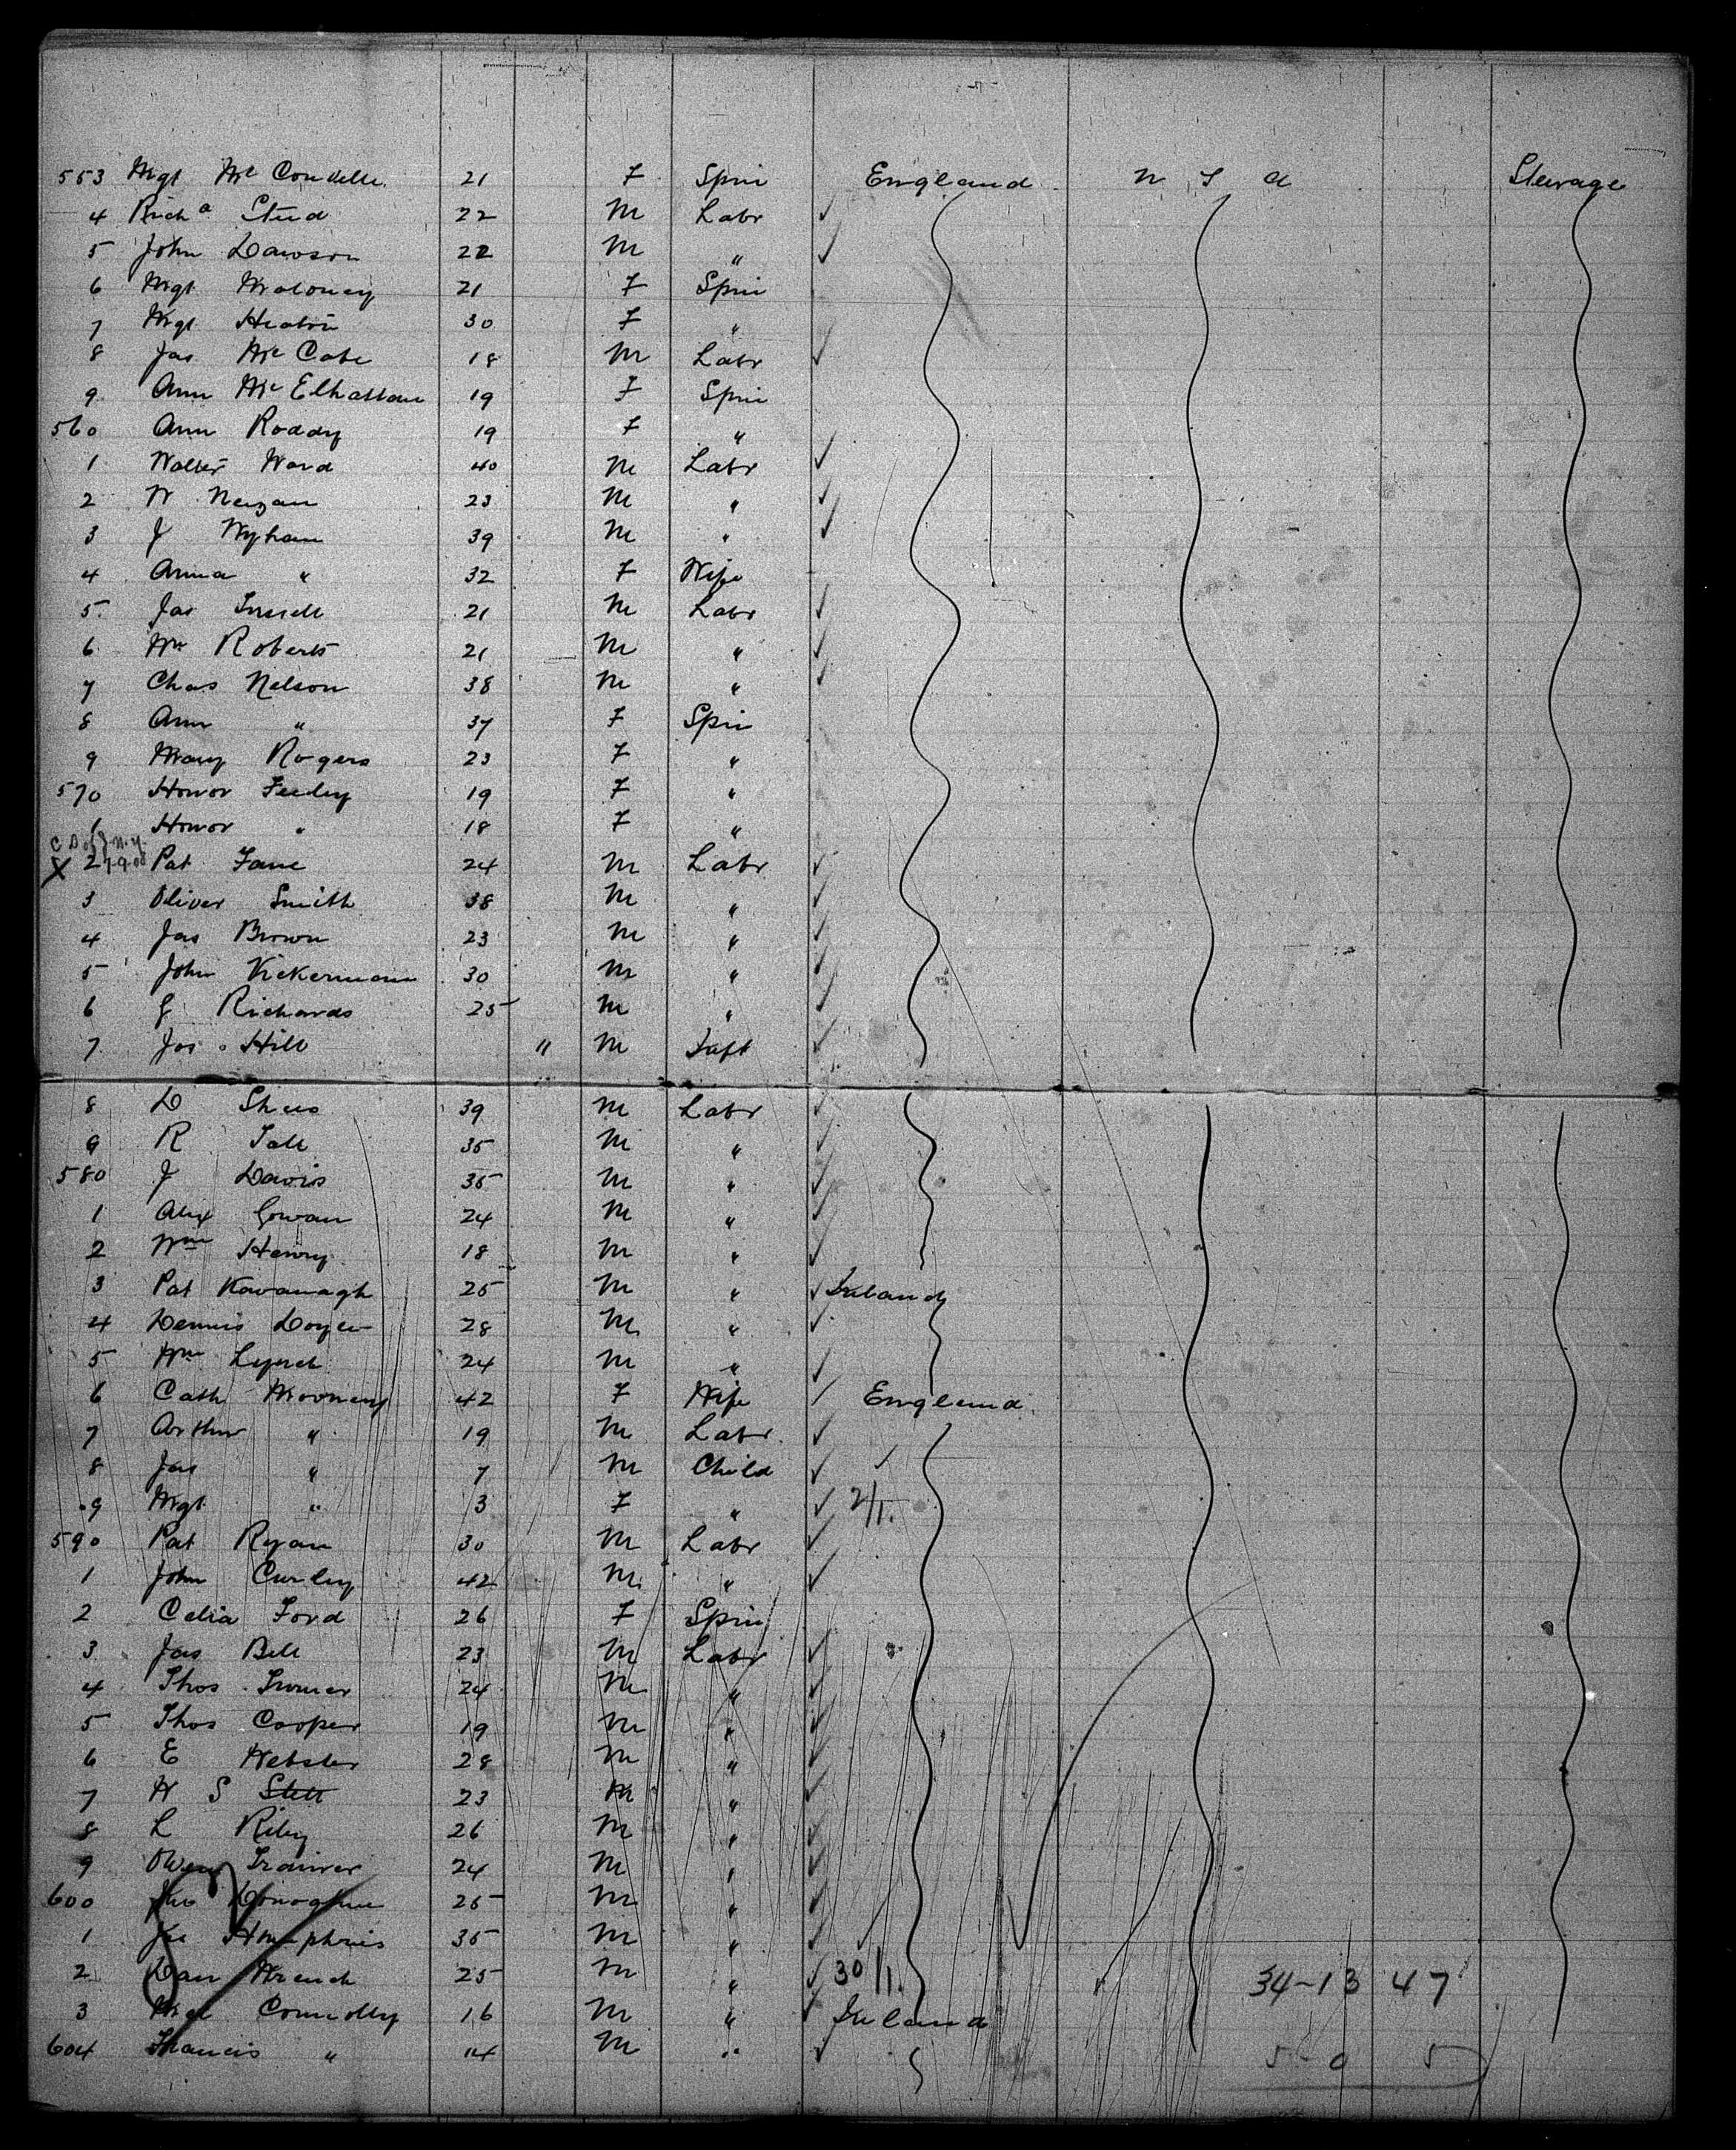 553 Mgt Mc Condelle. 21 F Spin England U S A Steerage
4 Richd Stud 22 M Labr ✓
5 John Dawson 22 M " ✓
6 Mgt Maloney 21 F Spin
7 Mgt Heaton 30 F "
8 Jas McCabe 18 M Labr ✓
9 Ann McElhattan 19 F Spin
560 Ann Roddy 19 F "
1 Walter Ward 40 M Labr ✓
2 W 23 M " ✓
3 J Wyham 39 M " ✓
4 Anna " 32 F Wife
5 Jas 21 M Labr ✓
6 Wm Roberts 21 M " ✓
7 Chas Nelson 38 M " ✓
8 Ann " 37 F Spin
9 Mary Rogers 23 F "
570 Honor Feeley 19 F "
1 Honor " 18 F "
X 2 Pat Fane 24 M Labr ✓
3 Oliver Smith 38 M " ✓
4 Jas Brown 23 M " ✓
5 John Vickermann 30 M " ✓
6 G Richards 25 M " ✓
7 Jos. Hill " M Inft ✓
8 D 39 M Labr ✓
9 R Tall 35 M " ✓
580 J Davis 35 M " ✓
1 Alex Gowan 24 M " ✓
2 Wm Henry 18 M " ✓
3 Pat Kavanagh 25 M " ✓ Ireland
4 Dennis Doyle 28 M " ✓
5 Wm Lynch 24 M " ✓
6 Cath Mooney 42 F Wife / England
7 Arthur " 19 M Labr ✓
8 Jas " 7 M Child ✓ ✓
9 Mgt " 3 F " ✓ 2/1.
590 Pat Ryan 30 M Labr ✓
1 John Curley 42 M " ✓
2 Celia Ford 26 F Spin
3 Jas Bell 23 M Labr ✓
4 Thos 24 M " ✓
5 Thos Cooper 19 M " ✓
6 E Webster 28 M " ✓
7 W S Stell 23 M " ✓
8 L Riley 26 M " ✓
9 Owen Trainer 24 M " ✓
600 Jno Donoghue 25 M " ✓
1 Jas Humphries 35 M " ✓
2 Dan Wrench 25 M " ✓ 30/1. 34-13 47
3 Connolly 16 M " ✓ Ireland
604 Francis " 14 M " ✓ 5 0 5